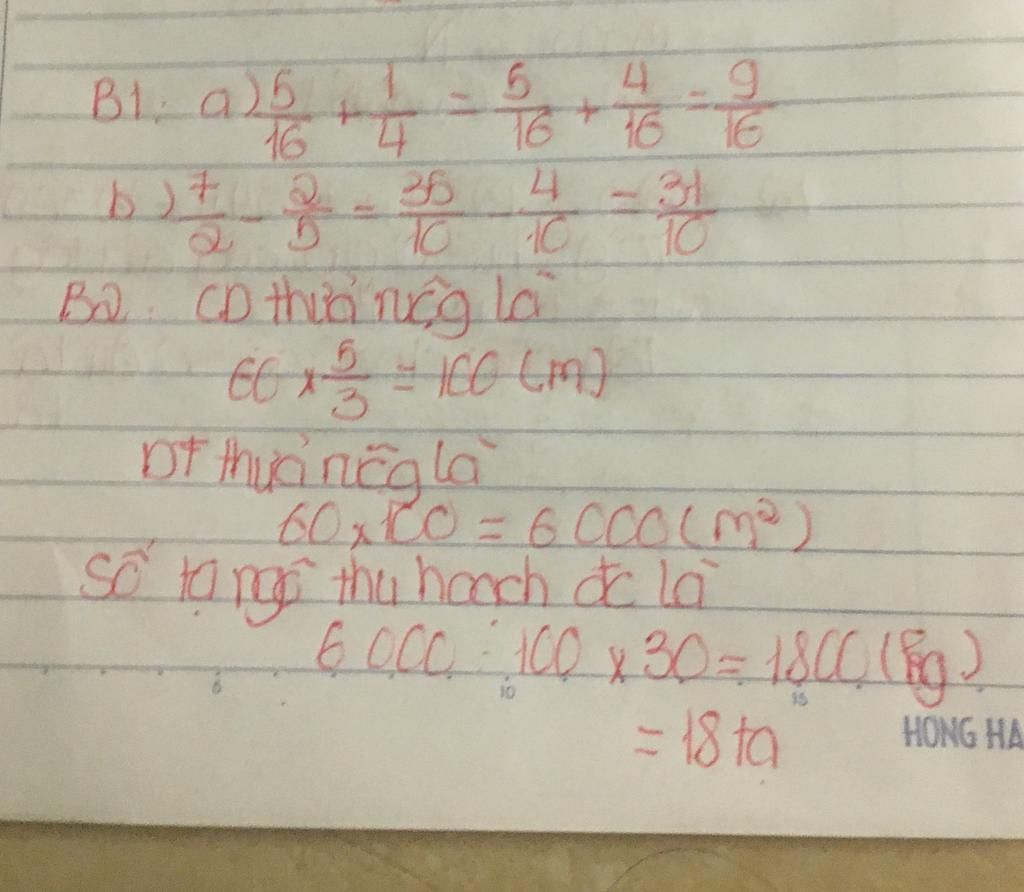 B1: a) 5/16 + 1/4 = 5/16 + 4/16 = 9/16
b) 7/2 - 2/5 = 35/10 - 4/10 = 31/10
B2. CD thửa là
60 x 5/3 = 100 (m)
DT thửa là
60 x 100 = 6 000 (m²)
Số tạ ngô thu hoach đc là
6 000 : 100 x 30 = 1800 (kg)
= 18 tạ
6 10 15
HONG HA